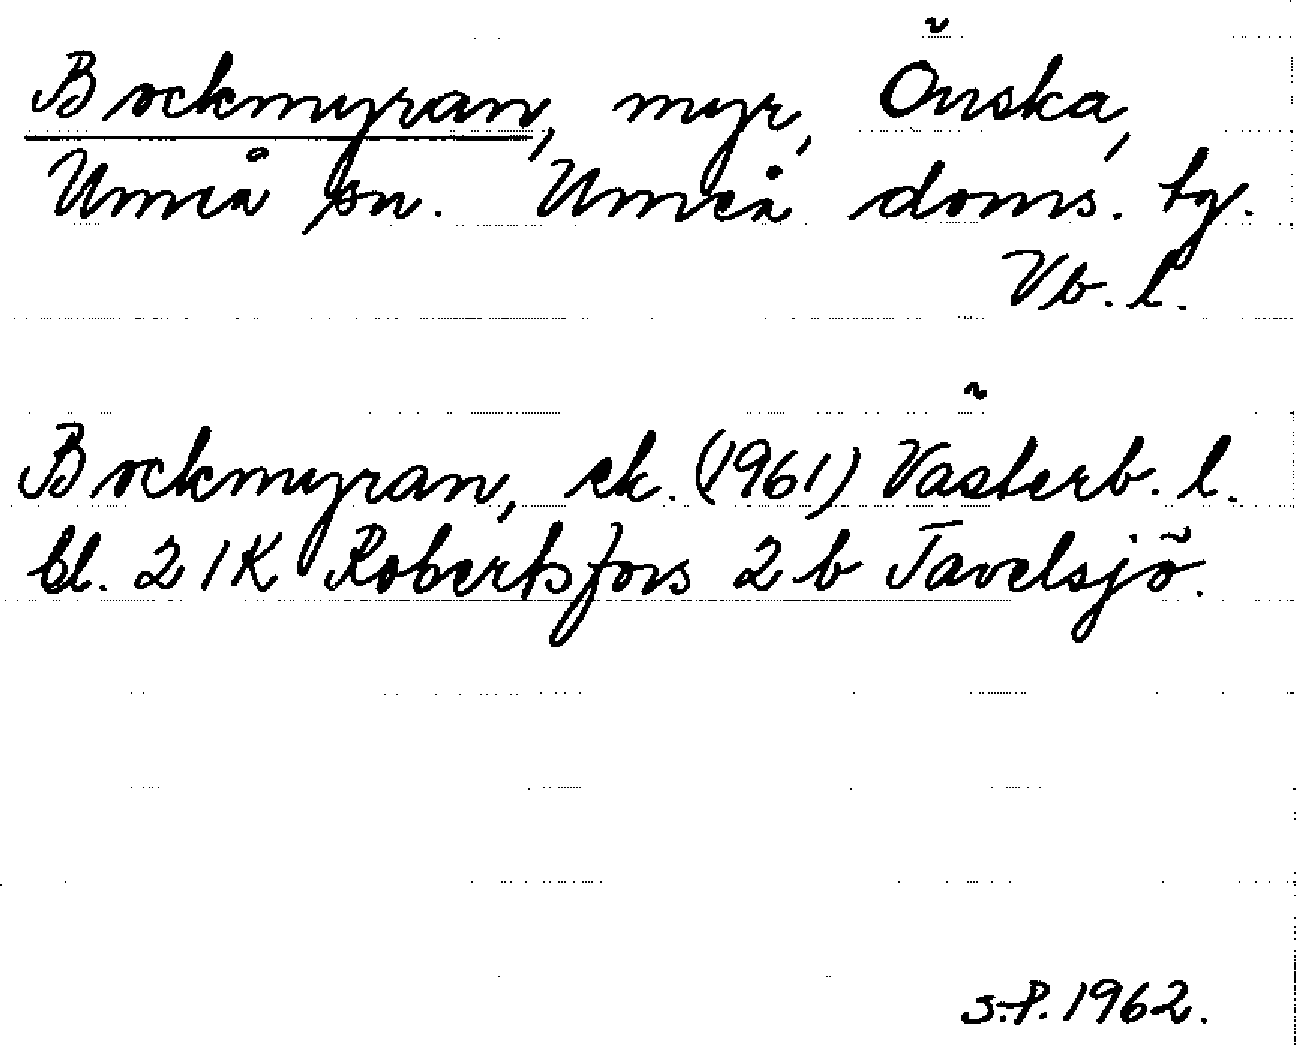 Bockmyran, myr, Önska,
Umeå sn. Umeå doms. tg.
Vb. l.
Bockmyran, ek. (1961) Västerb. l.
bl. 21K Robertsfors 2 b Tavelsjö.
S.P. 1962.